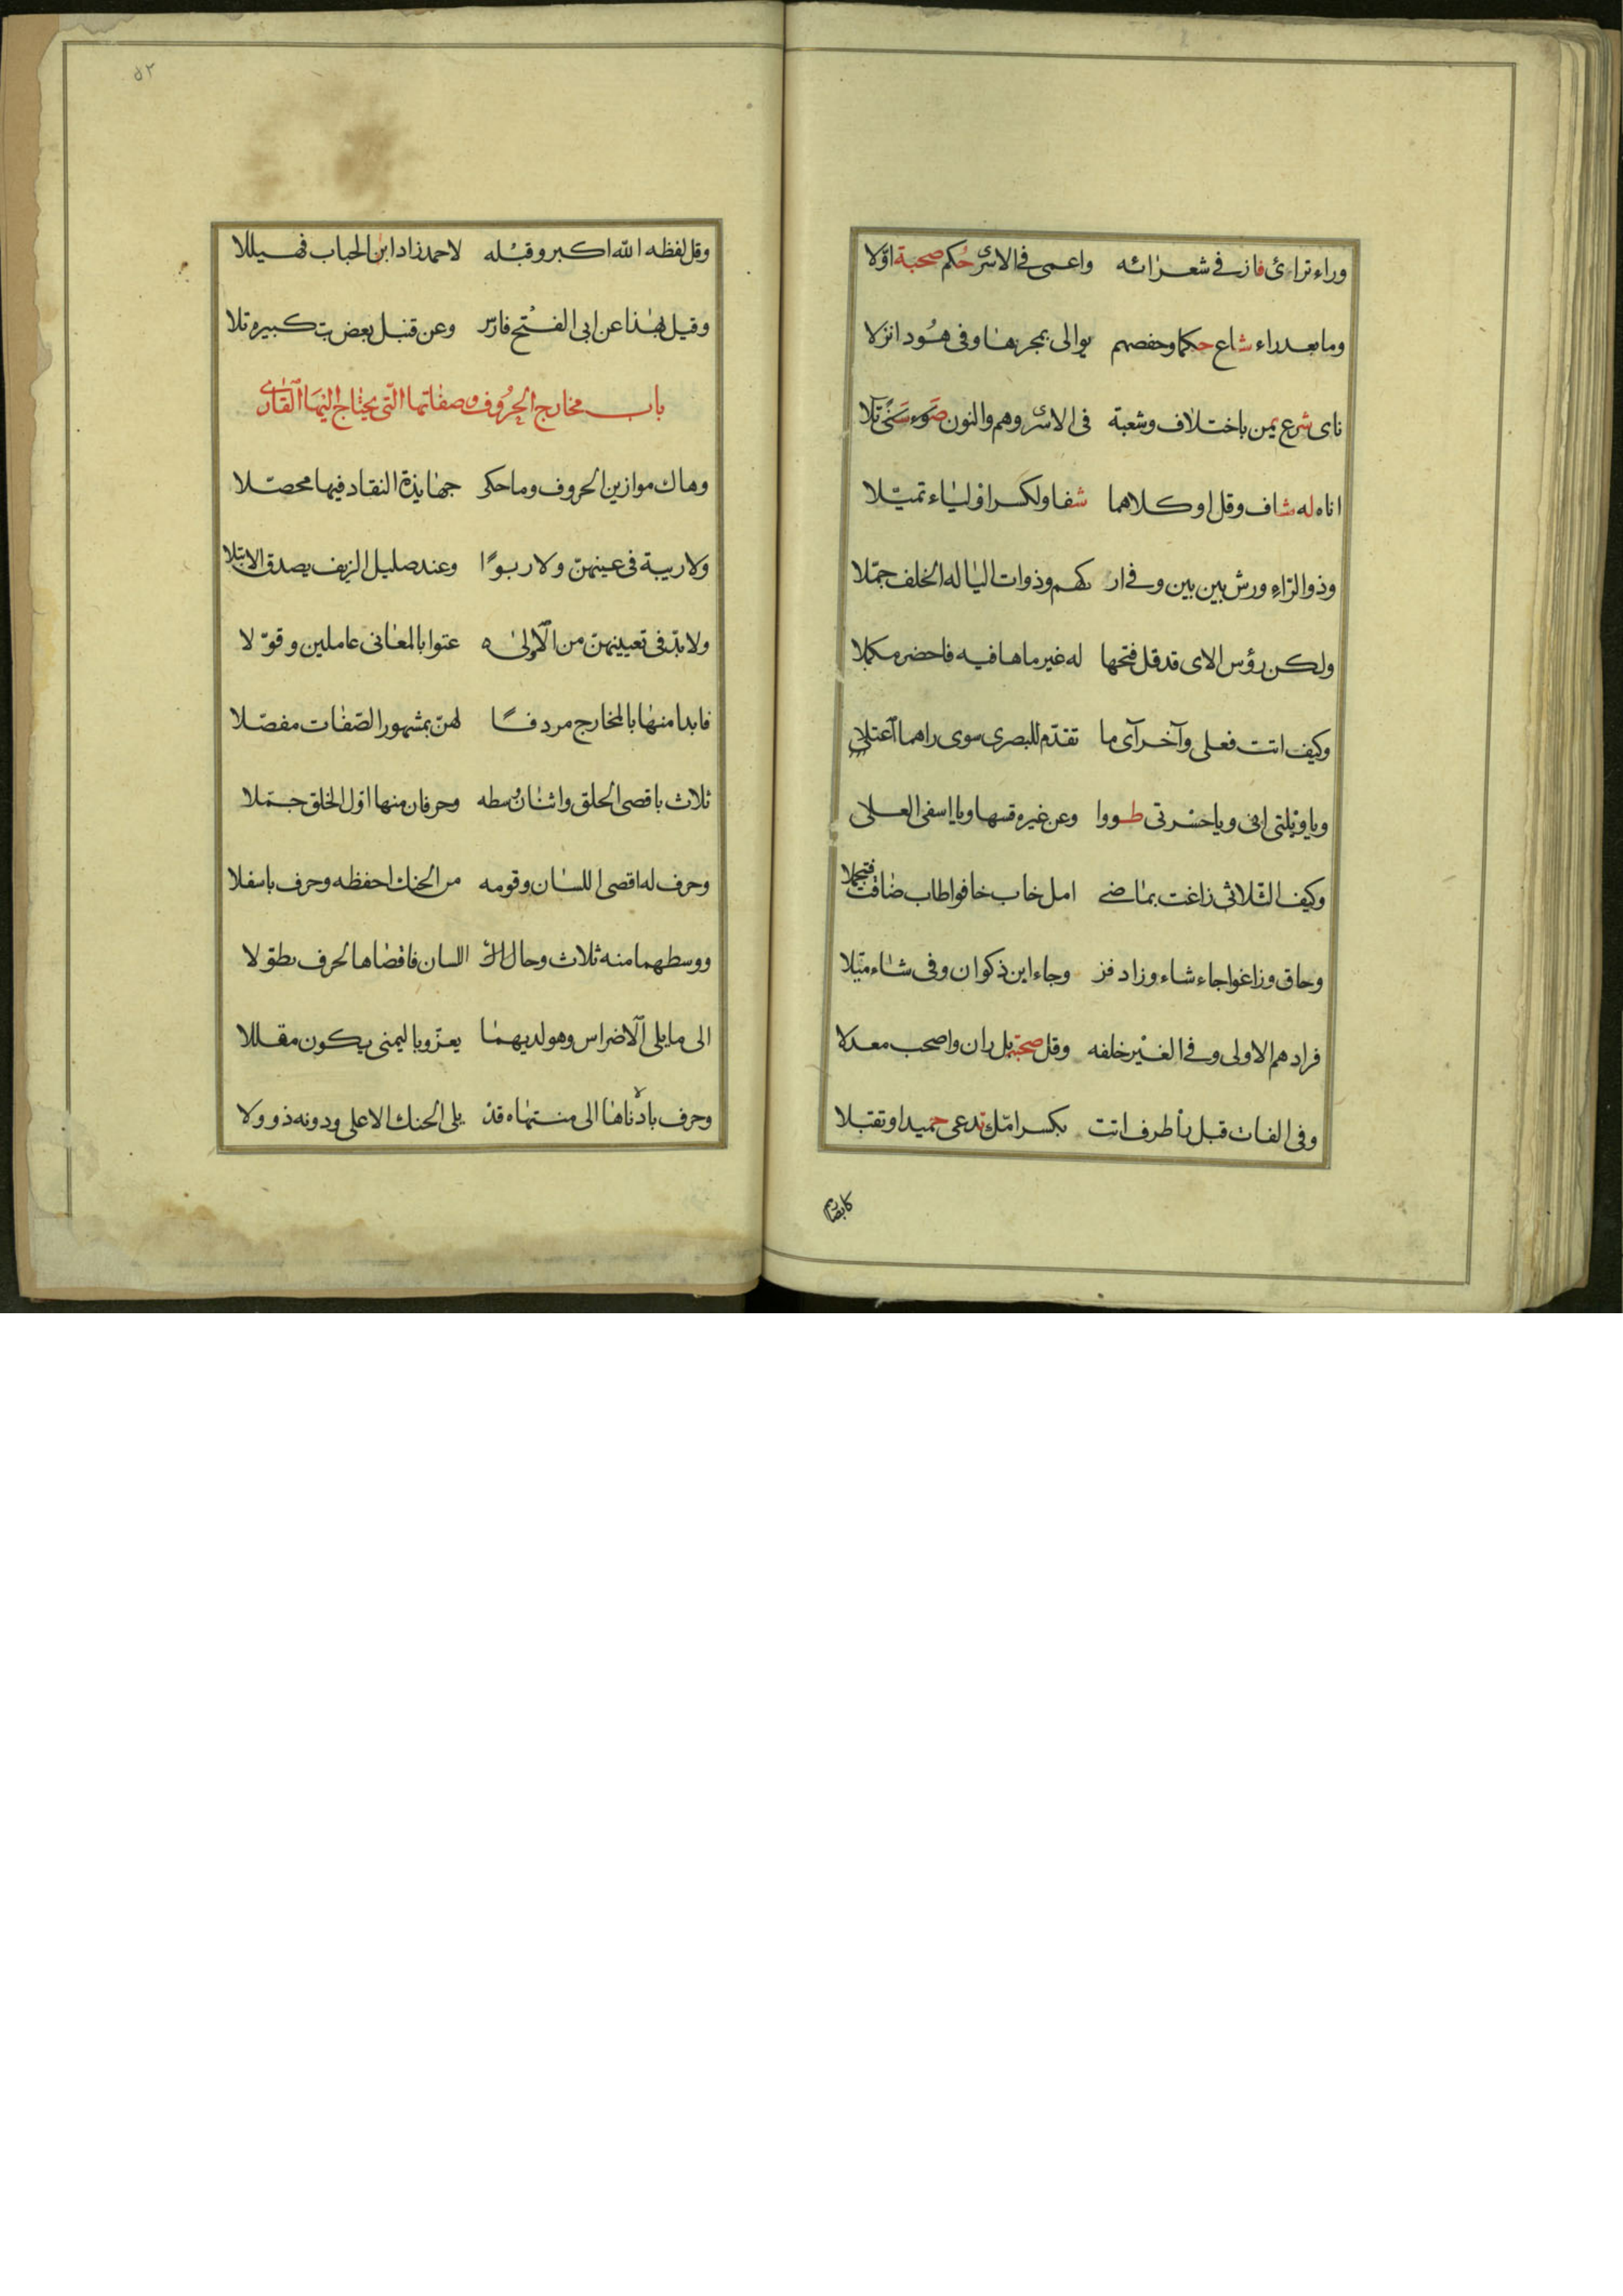 وراء ترائ فاز في شعرائه واعمى في الاسرى حكم صحبة اولا
وما بعد راء شاع حكما وحفصهم يوالى بمجريها وفى هود انزلا
ناى شرع يمن باختلاف وشعبة فى الاسرى وهم والنون ضوء سنى تلا
اناه له شاف وقل او كلاهما شفا ولكسر او لياء تميلا
وذو الراء ورش بين بين وفى ار كهم وذوات اليا له الخلف جملا
ولكن رؤس الاى قد قل فتحها له غير ماها فيه فاحضر مكملا
وكيف اتت فعلى وآخر آى ما تقدم للبصرى سوى راهما اعتلى
ويا ويلتى انى ويا حسرتى طووا وعن غيره قسها ويا اسفى العلى
وكيف الثلاثى زاغت بماضى امل خاب خافوا طاب ضاقت فتجملا
وحاق وزاغوا جاء شاء وزاد فز وجاء ابن ذكوان وفى شاء ميلا
فزادهم الاولى وفى الغير خلفه وقل صحبة بل ران واصحب معدلا
وفى الفات قبل را طرف اتت بكسر امل تدعى حميدا وتقبلا
كابصارهم
٥٢
وقل لفظه الله اكبر وقبله لاحمد زاد ابن الحباب فهيللا
وقيل بهذا عن ابى الفتح فارس وعن قنبل بعض بتكبيره تلا
باب مخارج الحروف وصفاتها التى يحتاج اليها القارى
وهاك موازين الحروف وما حكى جهابذة النقاد فيها محصلا
ولا ريبة فى عينهن ولا ربوا وعند صليل الزيف يصدق الابتلا
ولا بد فى تعيينهن من الاولى عنوا بالمعانى عاملين وقولا
فابدا منها بالمخارج مردفا لهن بمشهور الصفات مفصلا
ثلاث باقصى الحلق واثنان وسطه وحرفان منها اول الحلق جملا
وحرف له اقصى اللسان وفوقه من الحنك احفظه وحرف باسفلا
ووسطهما منه ثلاث وحافة اللسان فاقصاها لحرف تطولا
الى ما يلى الاضراس وهو لديهما يعز وباليمنى يكون مقللا
وحرف بادناها الى منتهاه قد يلى الحنك الاعلى ودونه ذو ولا